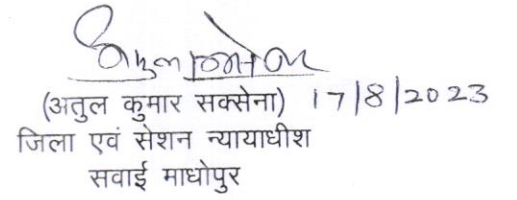 (अतुल कुमार सक्सेना) 17/8/2023
जिला एवं सेशन न्यायाधीश
सवाई माधोपुर